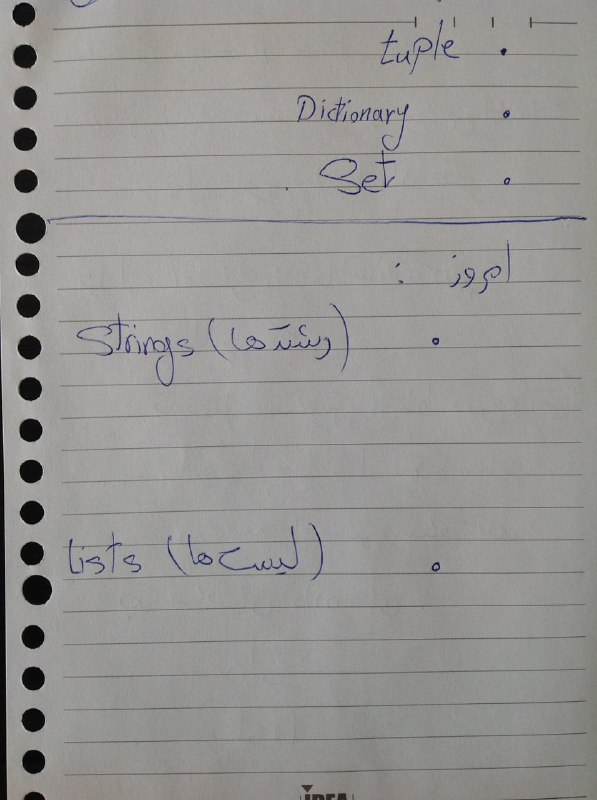 • tuple
• Dictionary
• Set
امروز :
• Strings (رشته‌ها)
• Lists (لیست‌ها)